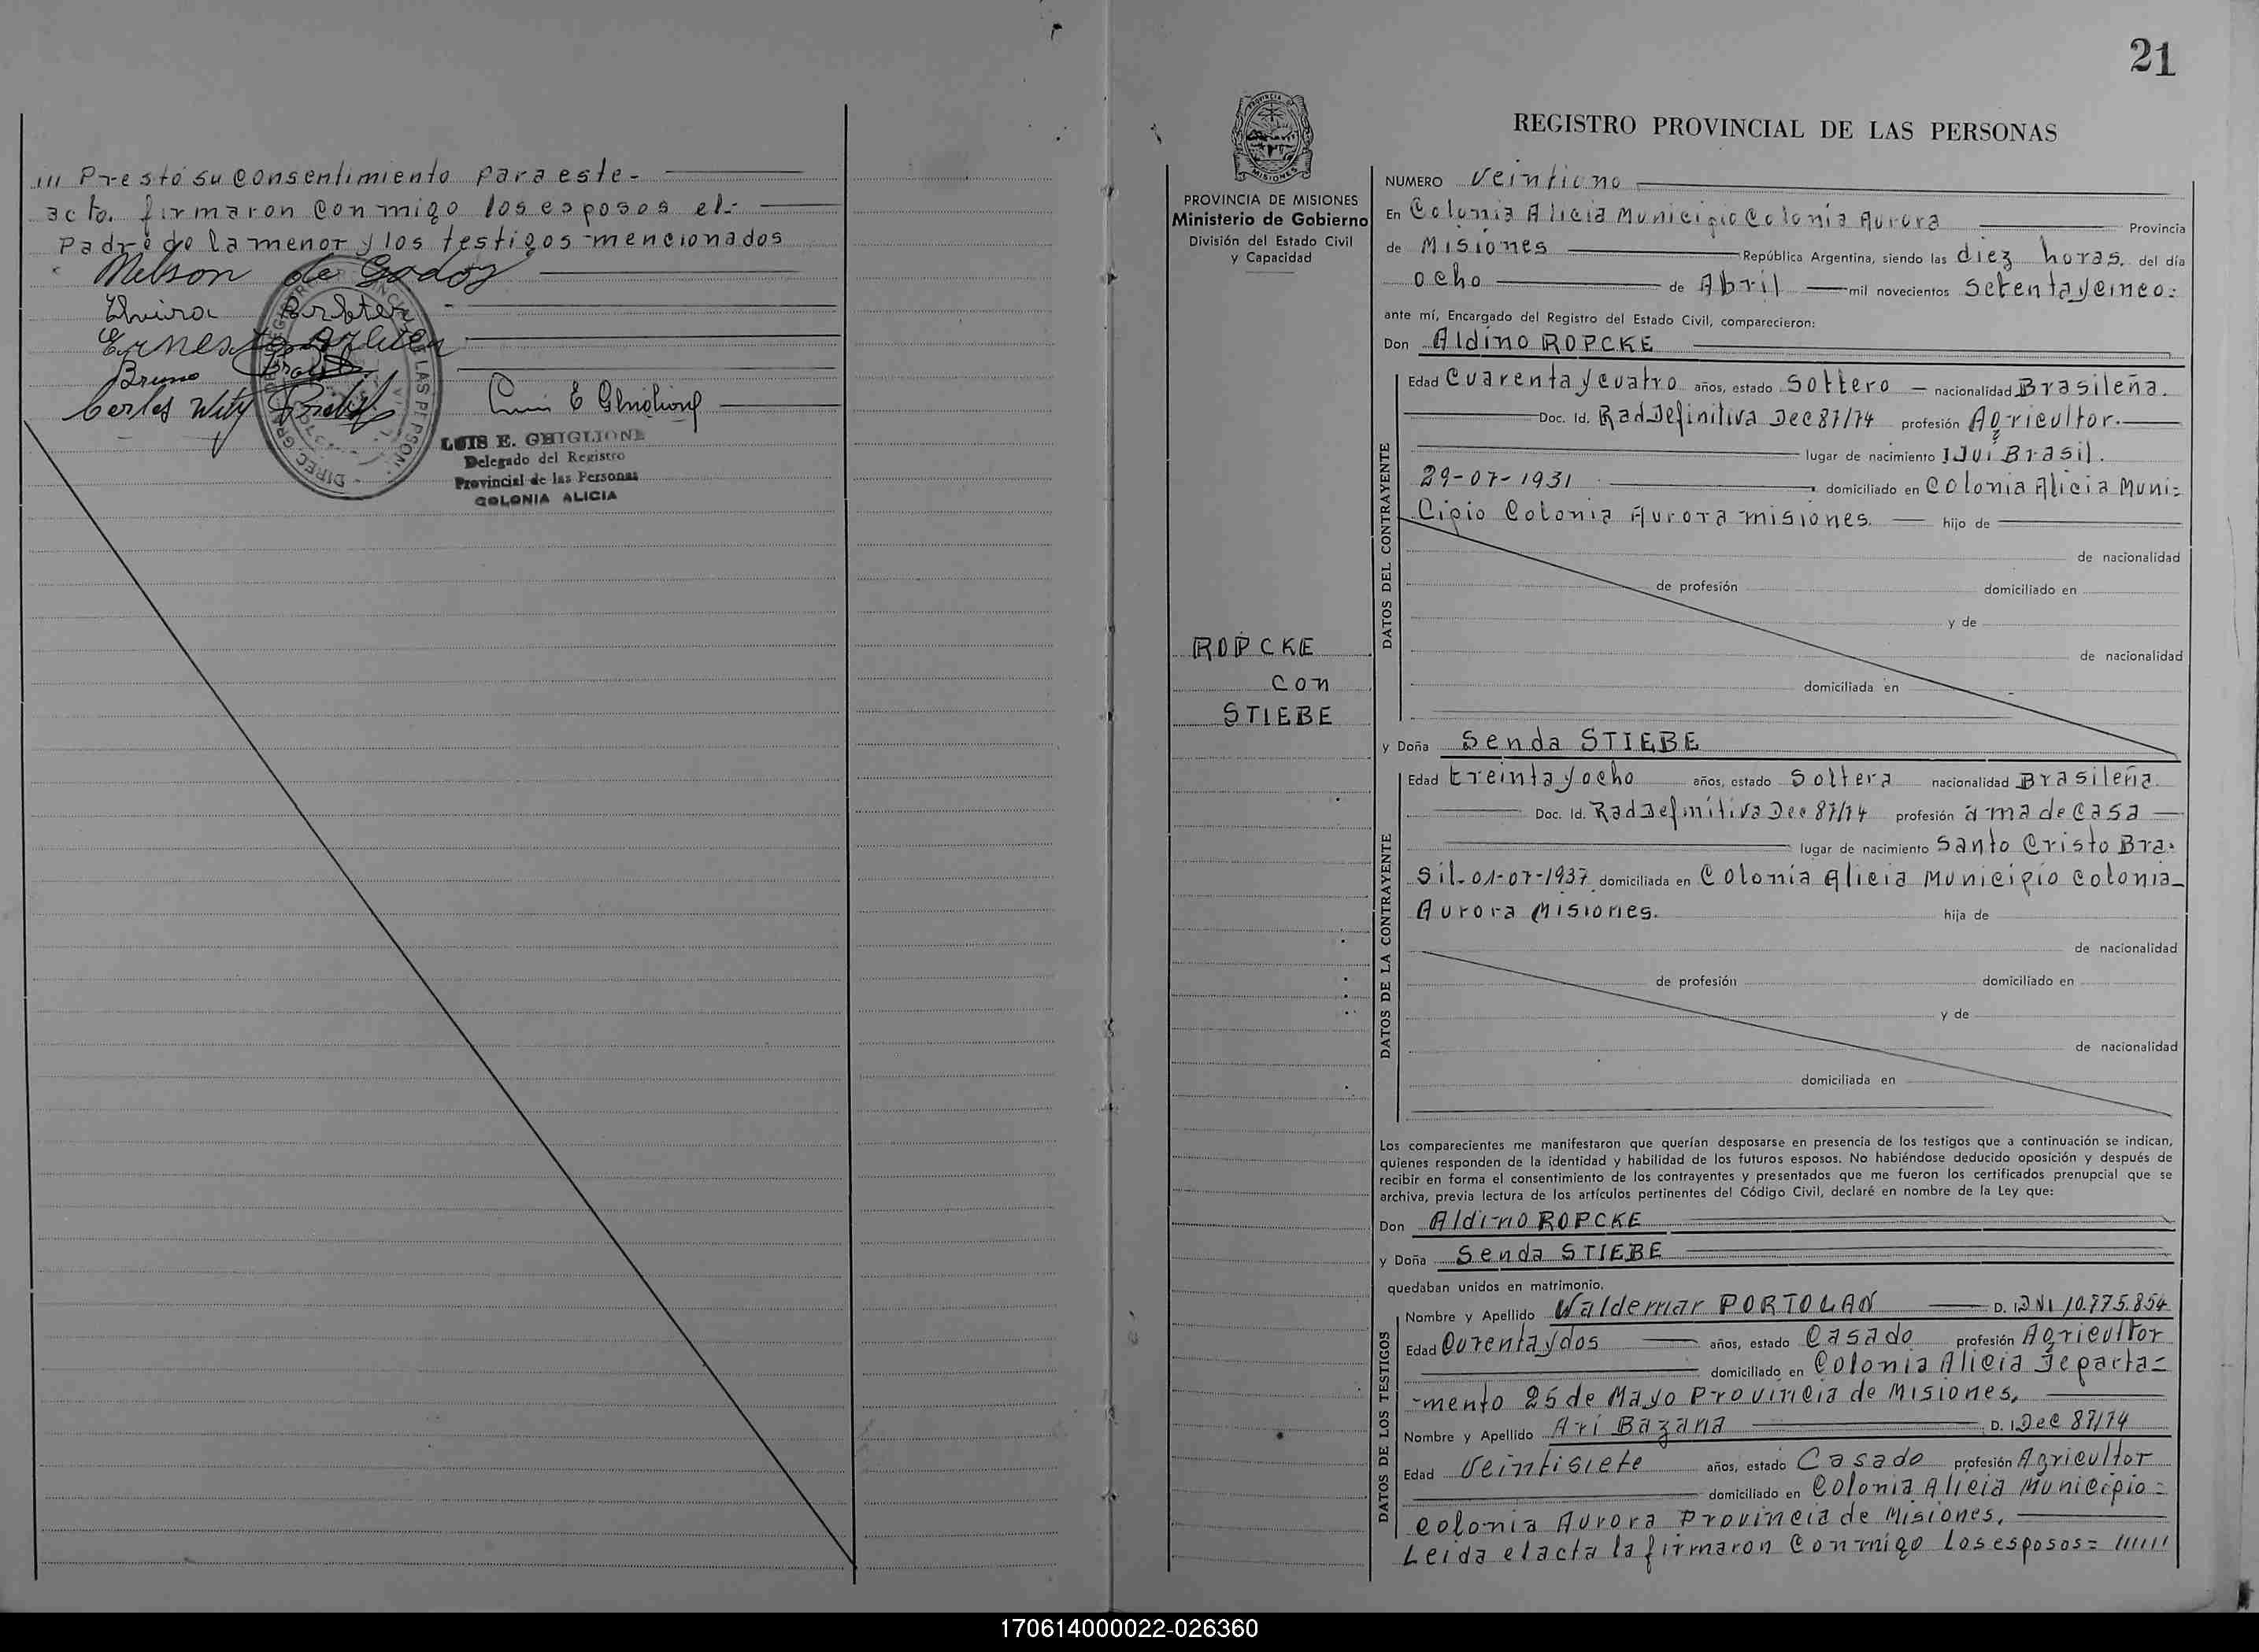 /// Prestó su consentimiento para este-
acto. firmaron conmigo los esposos el-
Padre de la menor y los testigos mencionados
Nelson de Godoy
Elvira
Ernesto
Bruno
Carlos
LUIS E. GHIGLIONE
Delegado del Registro
Provincial de las Personas
COLONIA ALICIA
21
REGISTRO PROVINCIAL DE LAS PERSONAS
PROVINCIA DE MISIONES
Ministerio de Gobierno
División del Estado Civil
y Capacidad
ROPCKE
con
STIEBE
NUMERO Veintiuno
En Colonia Alicia Municipio Colonia Aurora Provincia
de Misiones República Argentina, siendo las diez horas. del día
ocho de Abril mil novecientos Setentaycinco:
ante mí, Encargado del Registro del Estado Civil, comparecieron:
Don Aldino ROPCKE
DATOS DEL CONTRAYENTE
Edad Cuarentaycuatro años, estado Soltero nacionalidad Brasileña.
Doc. Id. Rad Definitiva Dec 87/74 profesión Agricultor.
lugar de nacimiento IJui Brasil.
29-07-1931 domiciliado en Colonia Alicia Muni=
Cipio Colonia Aurora misiones. hijo de
de nacionalidad
de profesión domiciliado en
y de
de nacionalidad
domiciliada en
y Doña Senda STIEBE
DATOS DE LA CONTRAYENTE
Edad treintayocho años, estado Soltera nacionalidad Brasileña.
Doc. Id. Rad Definitiva Dec 87/74 profesión ama de casa
lugar de nacimiento Santo Cristo Bra-
sil-01-07-1937 domiciliada en Colonia Alicia Municipio Colonia-
Aurora Misiones. hija de
de nacionalidad
de profesión domiciliado en
y de
de nacionalidad
domiciliada en
Los comparecientes me manifestaron que querían desposarse en presencia de los testigos que a continuación se indican,
quienes responden de la identidad y habilidad de los futuros esposos. No habiéndose deducido oposición y después de
recibir en forma el consentimiento de los contrayentes y presentados que me fueron los certificados prenupcial que se
archiva, previa lectura de los artículos pertinentes del Código Civil, declaré en nombre de la Ley que:
Don Aldino ROPCKE
y Doña Senda STIEBE
quedaban unidos en matrimonio.
DATOS DE LOS TESTIGOS
Nombre y Apellido Waldemar PORTOLAN D. I DNI 10.775.854
Edad Curentaydos años, estado Casado profesión Agricultor
domiciliado en Colonia Alicia Departa=
-mento 25 de Mayo Provincia de Misiones,
Nombre y Apellido Ari Bazana D. I Dec 87/74
Edad Veintisiete años, estado Casado profesión Agricultor
domiciliado en Colonia Alicia Municipio=
Colonia Aurora Provincia de Misiones,
Leida el acta la firmaron Conmigo los esposos= //////
170614000022-026360